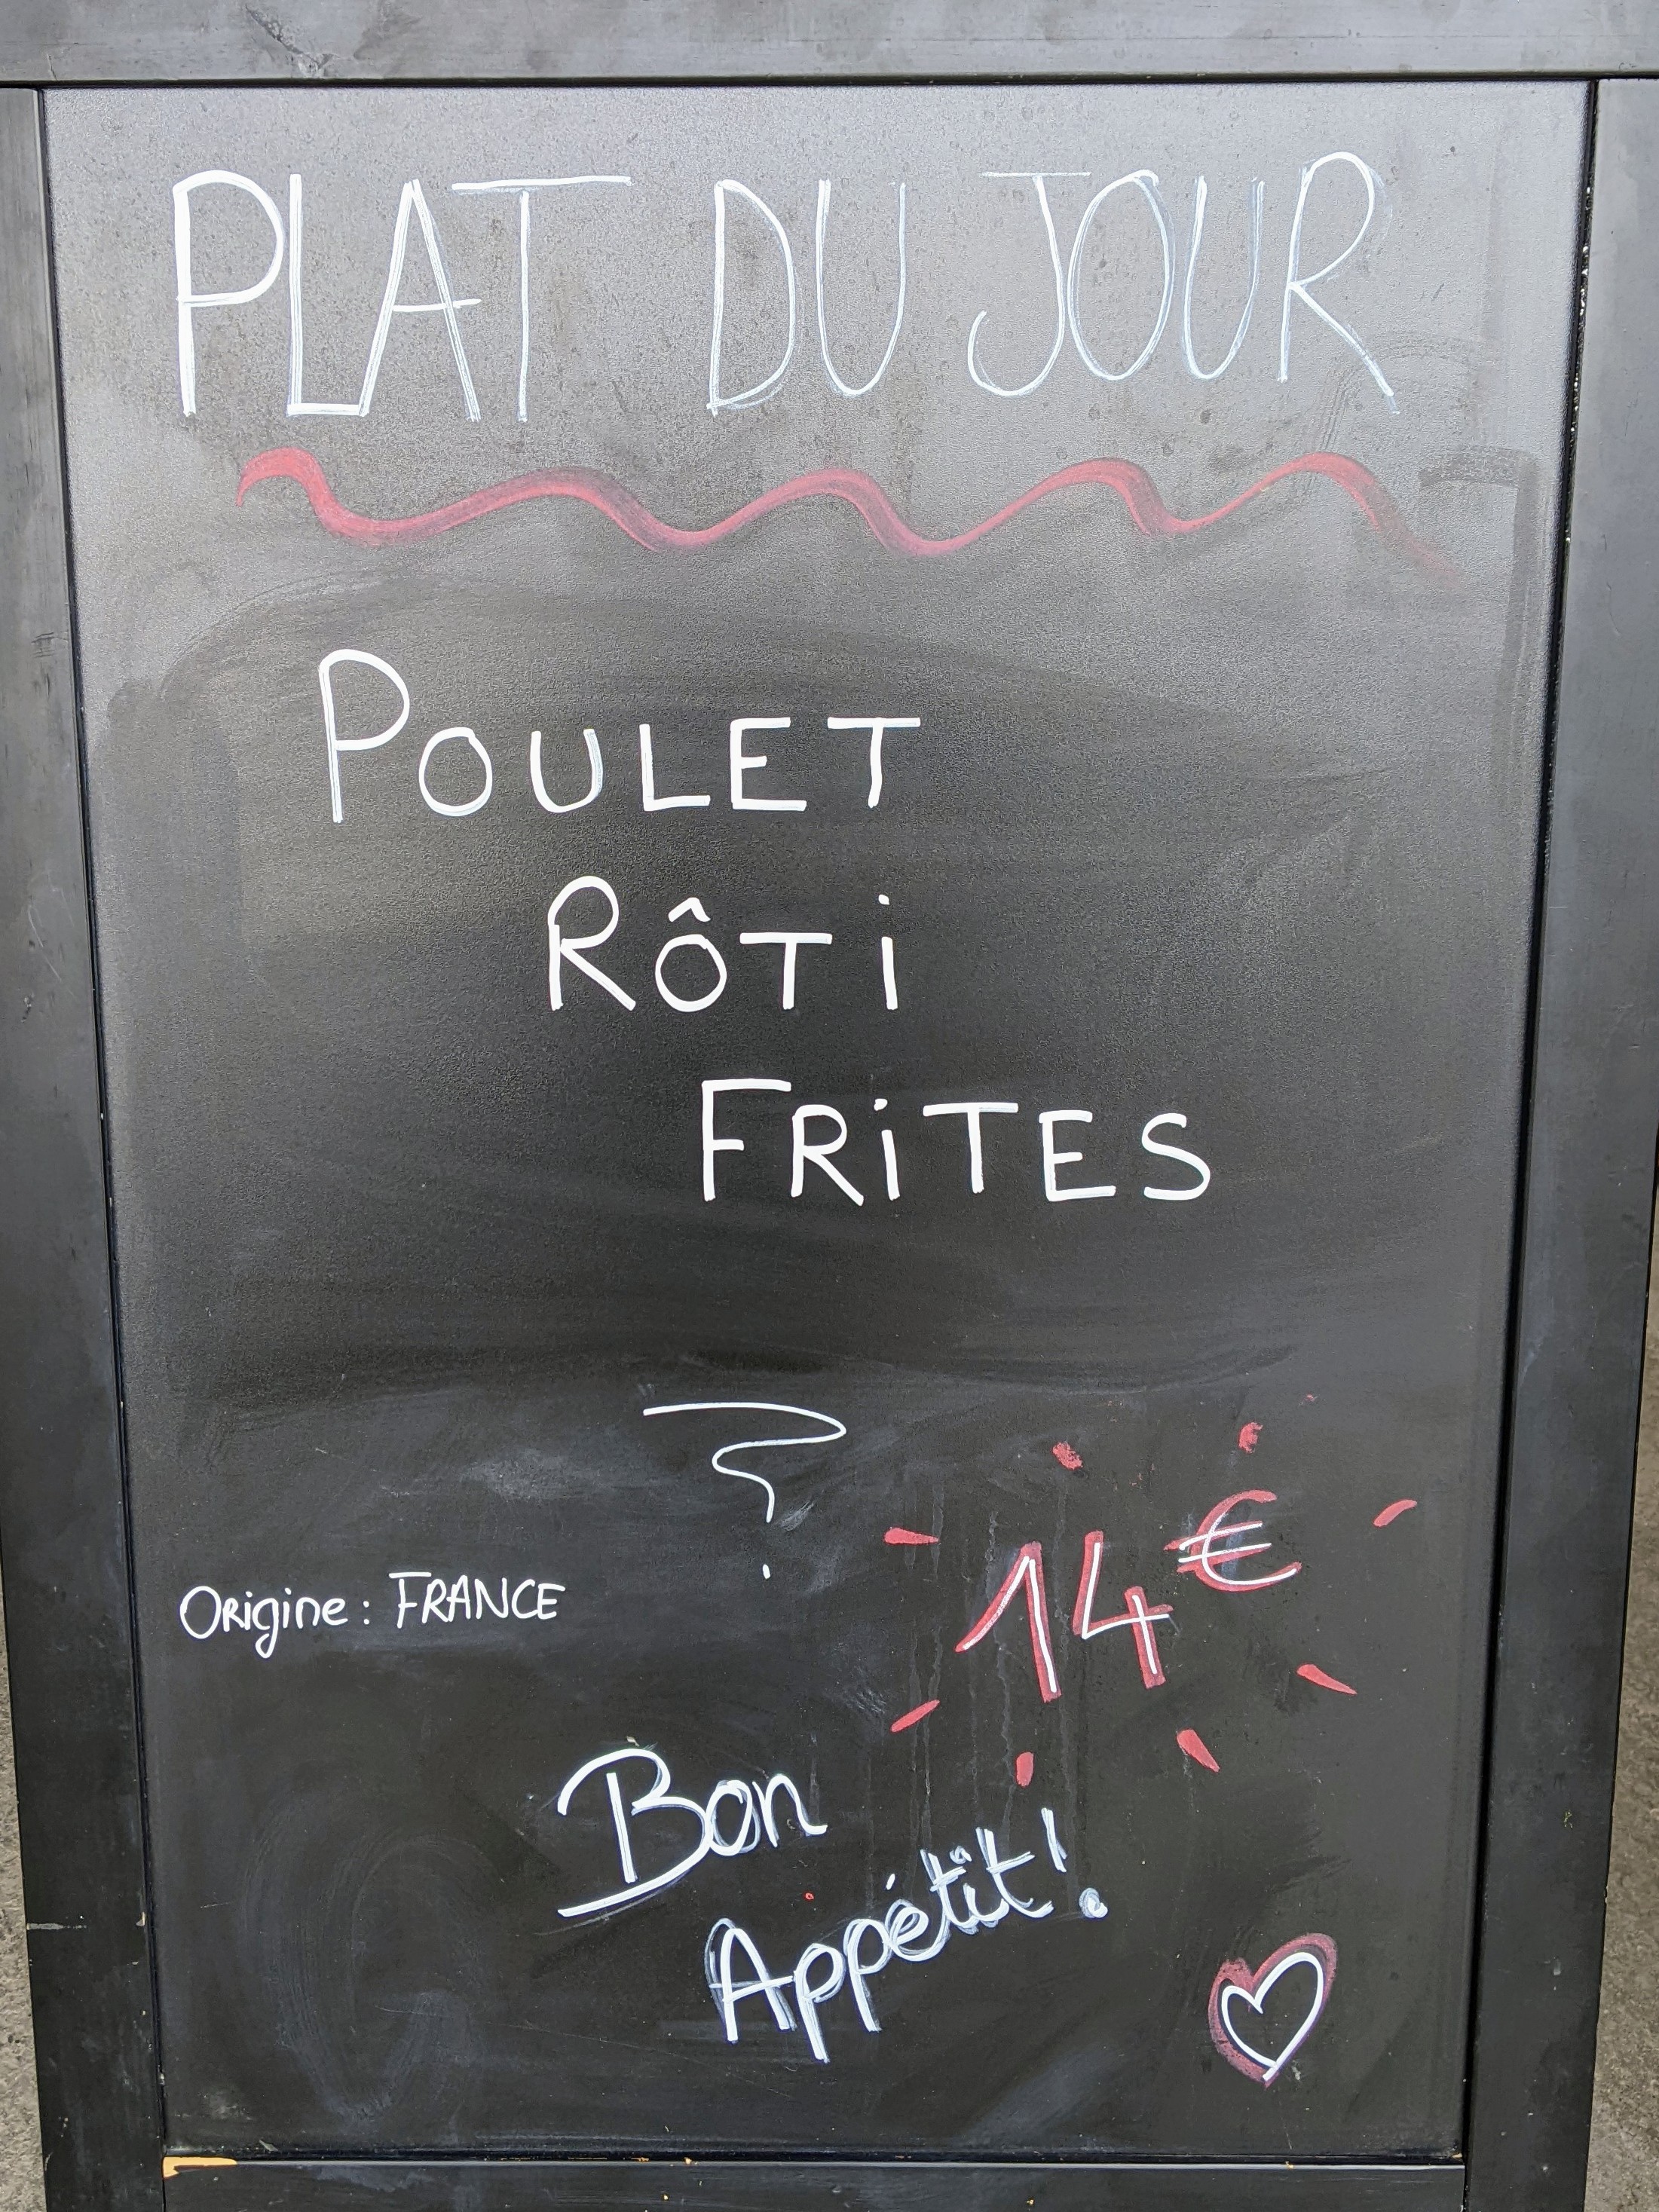 PLAT DU JOUR
POULET
RÔTi
FRiTES
Origine : FRANCE
14€
Bon
Appétit !